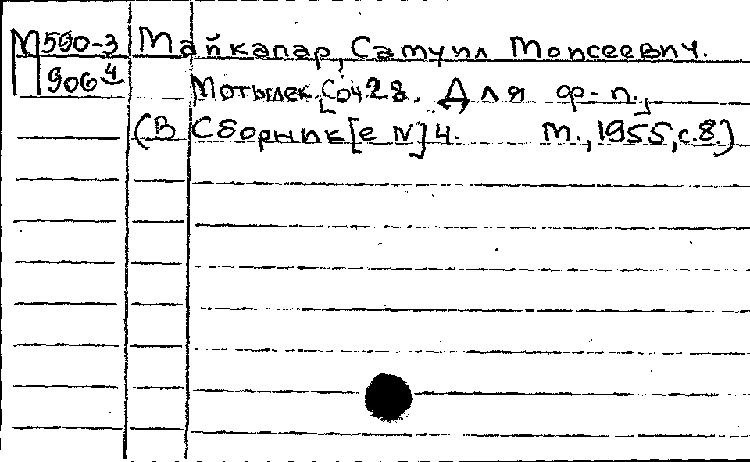 М590-3 Майкапар, Самуил Моисеевич.
906⁴ Мотылек. [Соч 28. Для ф-п.,
(В Сборник[е N] 4. М., 1955, с.8.)